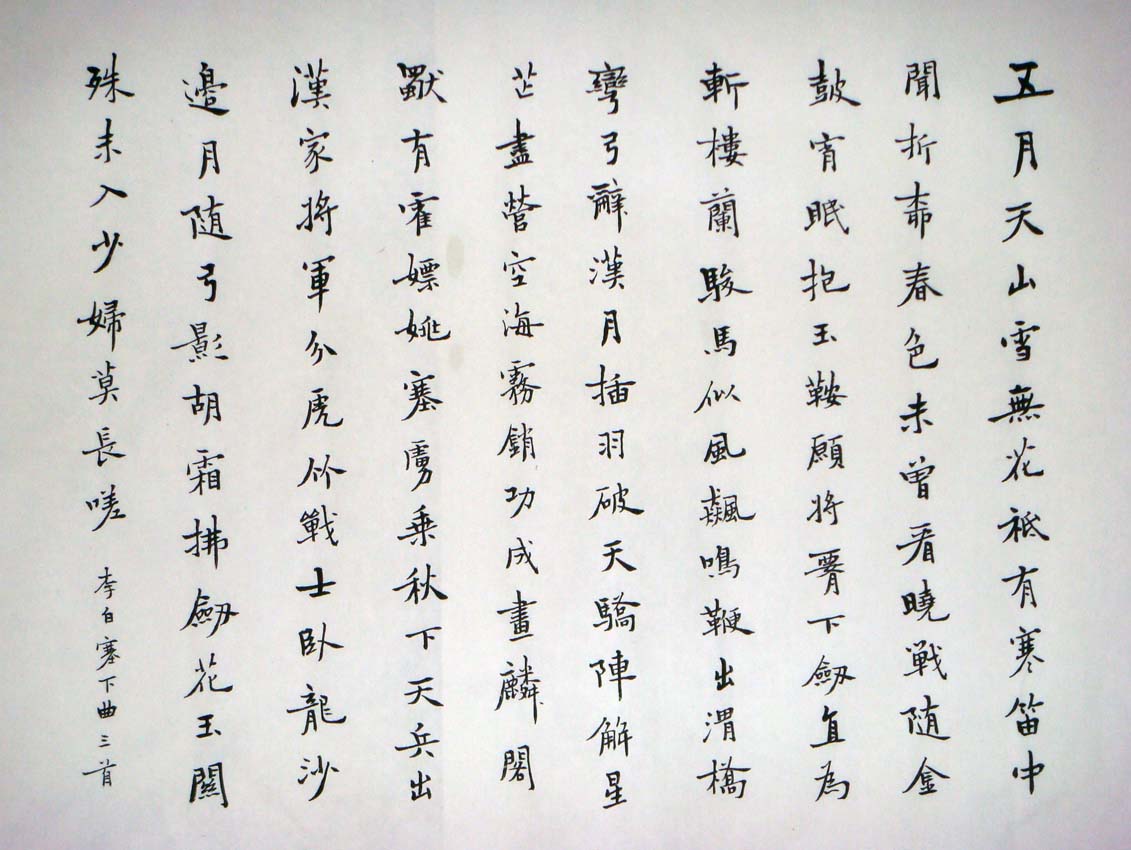 五月天山雪無花祗有寒笛中
聞折柳春色未曾看曉戰随金
鼓宵眠抱玉鞍願將腰下劒直為
斬樓蘭駿馬似風飆鳴鞭出渭橋
彎弓辭漢月插羽破天驕陣解星
芒盡營空海霧銷功成畫麟閣
獨有霍嫖姚塞虜乗秋下天兵出
漢家將軍分虎竹戰士臥龍沙
邊月随弓影胡霜拂劒花玉關
殊未入少婦莫長嗟
李白塞下曲三首